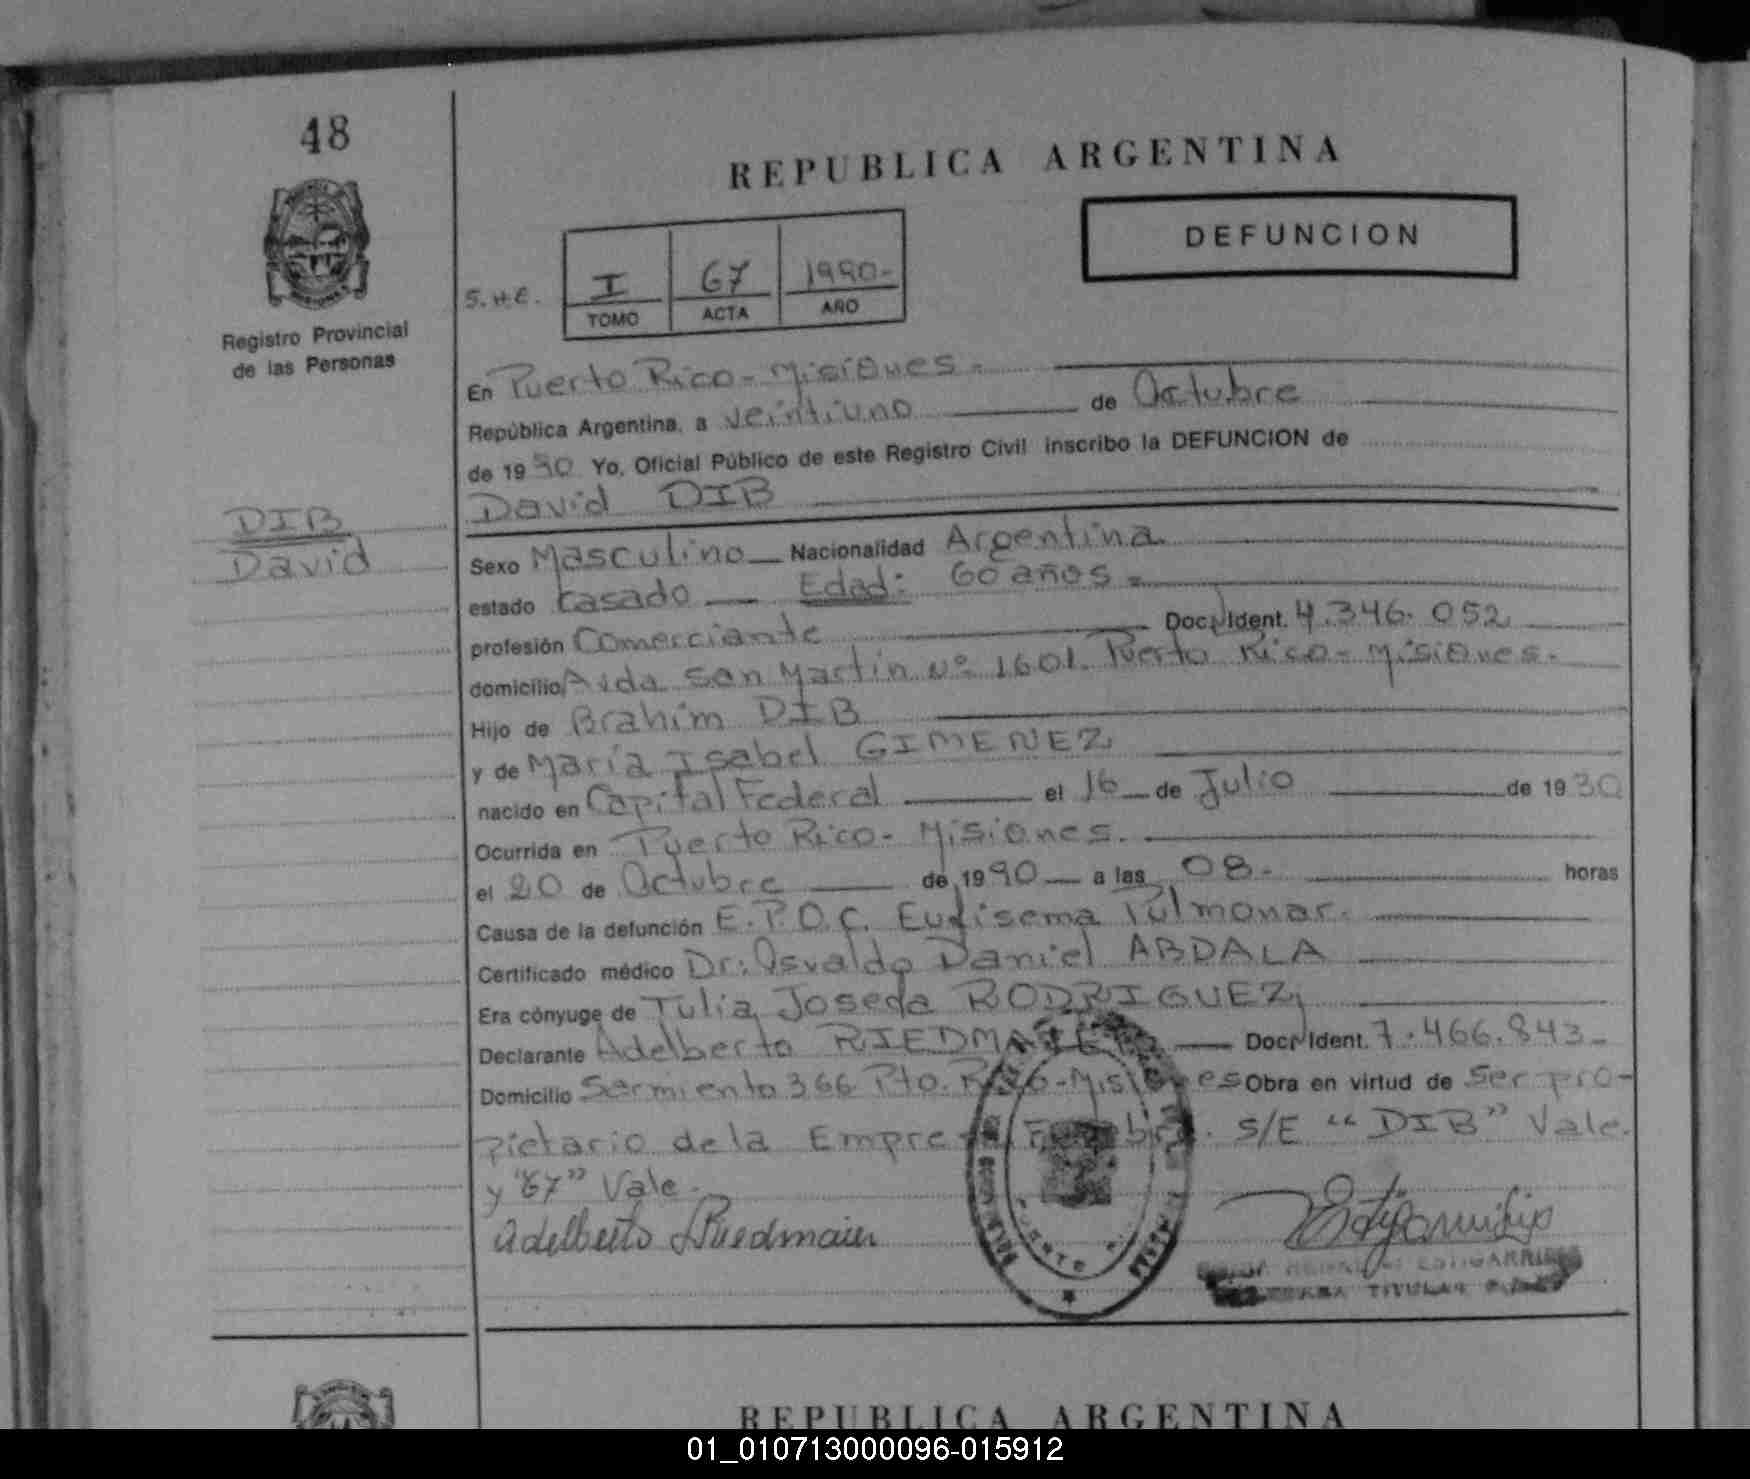 48
REPUBLICA ARGENTINA
DEFUNCION
S.H.E.
I 67 1990-
TOMO ACTA AÑO
Registro Provincial
de las Personas
En Puerto Rico - Misiones -
República Argentina, a veintiuno de Octubre
de 1990 Yo, Oficial Público de este Registro Civil inscribo la DEFUNCION de
David DIB
DIB
David
Sexo Masculino Nacionalidad Argentina
estado Casado Edad: 60 años -
profesión Comerciante Doc. Ident. 4.346.052
domicilio Avda San Martin Nº 1601. Puerto Rico - Misiones -
Hijo de Brahim DIB
y de María Isabel GIMENEZ
nacido en Capital Federal el 16 de Julio de 1930
Ocurrida en Puerto Rico - Misiones.
el 20 de Octubre de 1990 a las 08 - horas
Causa de la defunción E.P.O.C. Enfisema Pulmonar.
Certificado médico Dr: Osvaldo Daniel ABDALA
Era cónyuge de Julia Josefa RODRIGUEZ
Declarante Adelberto RIEDMAIER Doc. Ident. 7.466.843-
Domicilio Sarmiento 366 Pto. Rico - Misiones Obra en virtud de Ser pro-
pietario de la Empresa Fúnebre. S/E "DIB" Vale.
y "67" Vale.
Adelberto Riedmaier
TITULAR
REPUBLICA ARGENTINA
01_010713000096-015912